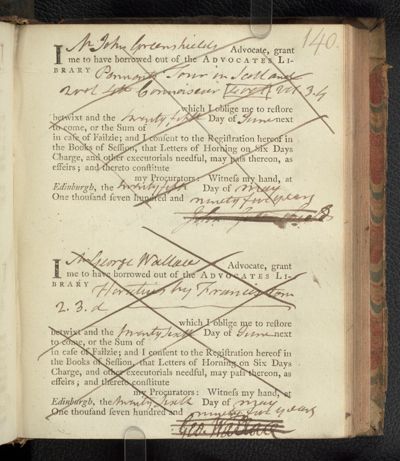 140.
I Mr John Greenshields Advocate, grant
me to have borrowed out of the ADVOCATES LI-
BRARY Pennants Tour in Scotland
2 vol 4to Connoiseur
which I oblige me to reſtore
betwixt and the twenty fifth Day of June next
to come, or the Sum of
in caſe of Failzie; and I conſent to the Regiſtration hereof in
the Books of Seſſion, that Letters of Horning on Six Days
Charge, and other executorials needful, may paſs thereon, as
effeirs; and thereto conſtitute
my Procurators: Witneſs my hand, at
Edinburgh, the twenty fifth Day of May
One thouſand ſeven hundred and ninety five years
I Mr George Wallace Advocate, grant
me to have borrowed out of the ADVOCATES LI-
BRARY Horatius by Francis
2. 3. d
which I oblige me to reſtore
betwixt and the twenty sixth Day of June next
to come, or the Sum of
in caſe of Failzie; and I conſent to the Regiſtration hereof in
the Books of Seſſion, that Letters of Horning on Six Days
Charge, and other executorials needful, may paſs thereon, as
effeirs; and thereto conſtitute
my Procurators: Witneſs my hand, at
Edinburgh, the twenty sixth Day of May
One thouſand ſeven hundred and ninety five years
Geo. Wallace